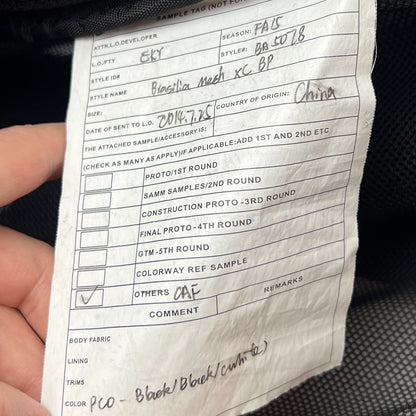 SAMPLE TAG (NOT FOR
ATTN.L.O.DEVELOPER
L.O./FTY EKY SEASON: FA15
STYLE ID# STYLE#: BA5078
STYLE NAME Brasilia Mesh XC BP
SIZE: COUNTRY OF ORIGIN: China
DATE OF SENT TO L.O. 2014.7.25
THE ATTACHED SAMPLE/ACCESSORY IS:
(CHECK AS MANY AS APPLY)IF APPLICABLE:ADD 1ST AND 2ND ETC
PROTO/1ST ROUND
SAMM SAMPLES/2ND ROUND
CONSTRUCTION PROTO -3RD ROUND
FINAL PROTO -4TH ROUND
GTM -5TH ROUND
COLORWAY REF SAMPLE
✓ OTHERS CAF
COMMENT
BODY FABRIC
LINING
TRIMS
COLOR P00 - Black/Black/(white)